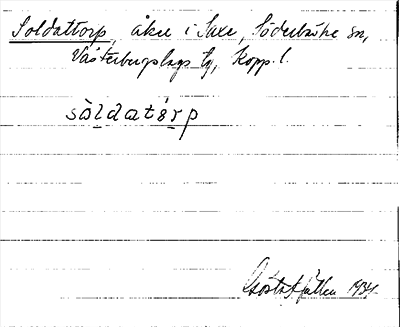 Soldattorp, åker i Saxe, Söderbärke sn,
Västerbergslags tg, Kopp. l.
sòldatórp
Gösta Sjöstedt 1934.